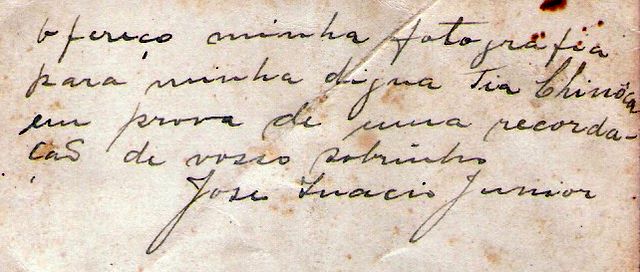 Ofereço minha fotografia
para minha digna Tia Chinoca
em prova de uma recorda-
cão de vosso sobrinho
Jose Inacio Junior